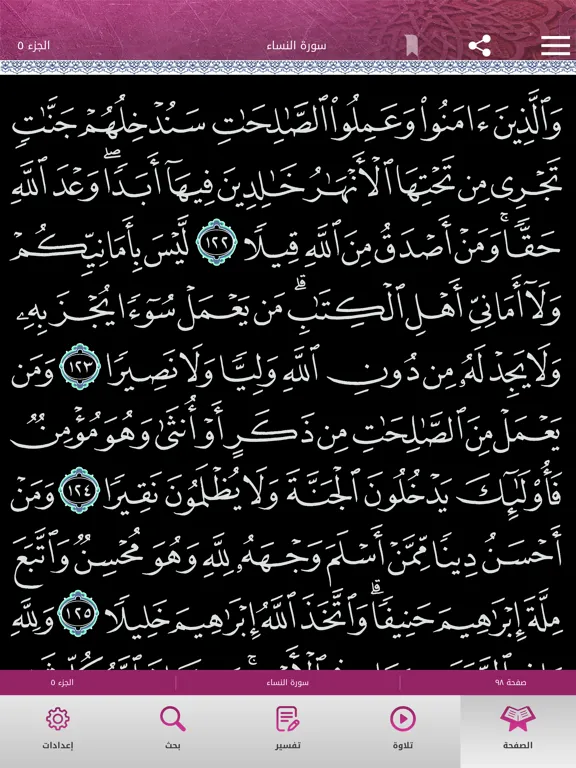 سورة النساء
الجزء ٥
وَٱلَّذِينَ ءَامَنُوا۟ وَعَمِلُوا۟ ٱلصَّـٰلِحَـٰتِ سَنُدْخِلُهُمْ جَنَّـٰتٍ
تَجْرِى مِن تَحْتِهَا ٱلْأَنْهَـٰرُ خَـٰلِدِينَ فِيهَآ أَبَدًا ۖ وَعْدَ ٱللَّهِ
حَقًّا ۚ وَمَنْ أَصْدَقُ مِنَ ٱللَّهِ قِيلًا ١٢٢ لَّيْسَ بِأَمَانِيِّكُمْ
وَلَآ أَمَانِىِّ أَهْلِ ٱلْكِتَـٰبِ ۗ مَن يَعْمَلْ سُوٓءًا يُجْزَ بِهِۦ
وَلَا يَجِدْ لَهُۥ مِن دُونِ ٱللَّهِ وَلِيًّا وَلَا نَصِيرًا ١٢٣ وَمَن
يَعْمَلْ مِنَ ٱلصَّـٰلِحَـٰتِ مِن ذَكَرٍ أَوْ أُنثَىٰ وَهُوَ مُؤْمِنٌ
فَأُو۟لَـٰٓئِكَ يَدْخُلُونَ ٱلْجَنَّةَ وَلَا يُظْلَمُونَ نَقِيرًا ١٢٤ وَمَنْ
أَحْسَنُ دِينًا مِّمَّنْ أَسْلَمَ وَجْهَهُۥ لِلَّهِ وَهُوَ مُحْسِنٌ وَٱتَّبَعَ
مِلَّةَ إِبْرَٰهِيمَ حَنِيفًا ۗ وَٱتَّخَذَ ٱللَّهُ إِبْرَٰهِيمَ خَلِيلًا ١٢٥ وَلِلَّهِ
صفحة ٩٨
سورة النساء
الجزء ٥
الصفحة
تلاوة
تفسير
بحث
إعدادات